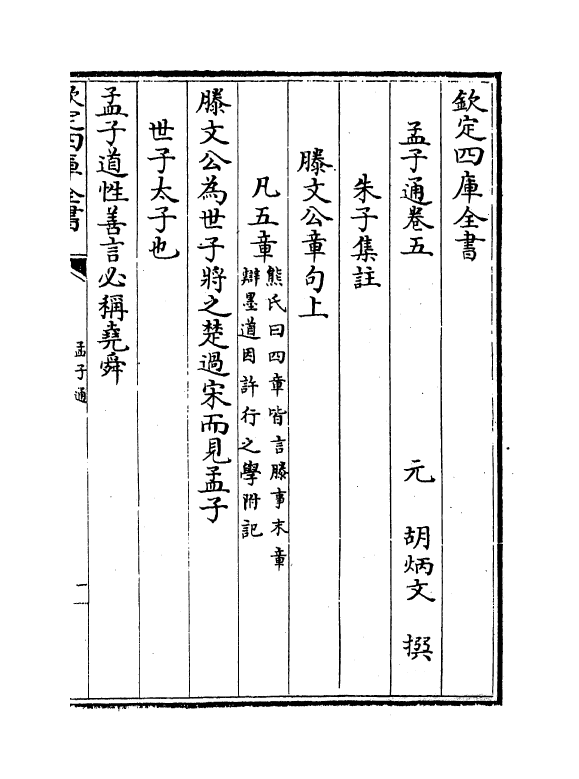 欽定四庫全書
孟子通卷五　元　胡炳文　撰
朱子集註
滕文公章句上
凡五章熊氏曰四章皆言滕事末章
辯墨道因許行之學附記
滕文公為世子將之楚過宋而見孟子
世子太子也
孟子道性善言必稱堯舜
欽定四庫全書
孟子通